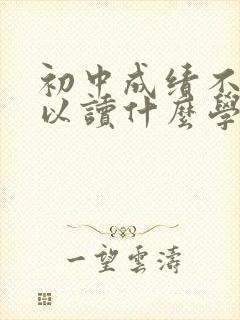 初中成绩不
以讀什麼學
一望雲濤